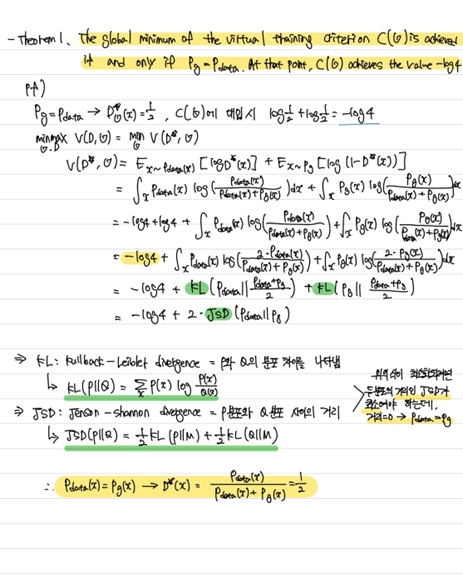 - Theorem 1. The global minimum of the virtual training criterion C(G) is achieved
if and only if Pg = Pdata. At that point, C(G) achieves the value -log4
pf)
Pg = Pdata → D*G(x) = 1/2, C(G)에 대입 시 log 1/2 + log 1/2 = -log4
min max V(D, G) = min V(D*, G)
G D G
V(D*, G) = Ex~Pdata(x) [log D*(x)] + Ex~Pg [log (1-D*(x))]
= ∫x Pdata(x) log(Pdata(x)/(Pdata(x)+Pg(x))) dx + ∫x Pg(x) log(Pg(x)/(Pdata(x)+Pg(x))) dx
= -log4 + log4 + ∫x Pdata(x) log(Pdata(x)/(Pdata(x)+Pg(x))) + ∫x Pg(x) log(Pg(x)/(Pdata(x)+Pg(x))) dx
= -log4 + ∫x Pdata(x) log(2·Pdata(x)/(Pdata(x)+Pg(x))) + ∫x Pg(x) log(2·Pg(x)/(Pdata(x)+Pg(x))) dx
= -log4 + KL(Pdata || (Pdata+Pg)/2) + KL(Pg || (Pdata+Pg)/2)
= -log4 + 2·JSD(Pdata || Pg)
⇒ KL: Kullback-Leibler divergence = P와 Q의 분포 차이를 나타냄
↳ KL(P||Q) = Σx P(x) log P(x)/Q(x)
⇒ JSD: Jenson-shannon divergence = P분포와 Q분포 사이의 거리
↳ JSD(P||Q) = 1/2 KL(P||M) + 1/2 KL(Q||M)
위의 식이 최소화되려면
두 분포의 거리인 JSD가
최소여야 하는데,
거리=0 → Pdata = Pg
∴ Pdata(x) = Pg(x) → D*(x) = Pdata(x)/(Pdata(x)+Pg(x)) = 1/2